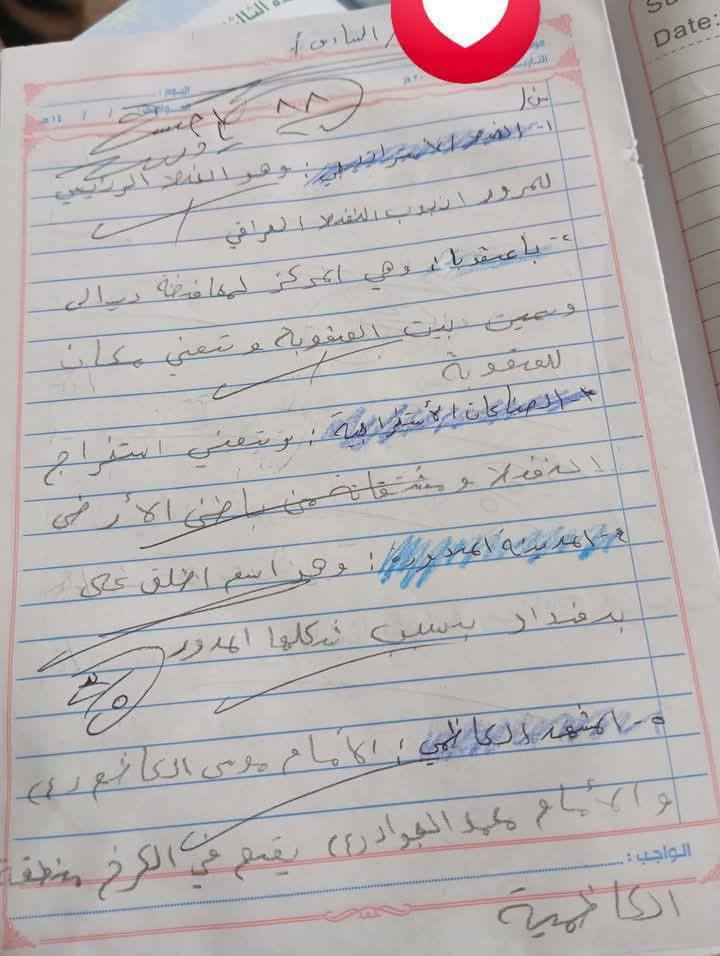 السادس /
Date:
اليوم :
٨٨
س١
١- الخط الاستراتيجي : وهو الخط الرئيسي
للمرور انبوب النفط العراقي
٢- باعقوبا : وهي المركز لمحافضة ديالى
وسميت بيت العقوبة وتعني مكان
العقوبة
٣- الصناعات الأستخراجية : وتعني استخراج
النفط ومشتقاته من باطن الأرض
٤- المدينة المدورة : وهو اسم اطلق على
بغداد بسبب شكلها المدور
٥- المشهد الكاظمي : الأمام موسى الكاظم (ع)
والأمام محمد الجواد (ع) يقع في الكرخ منطقة
الكاظمية
الواجب :